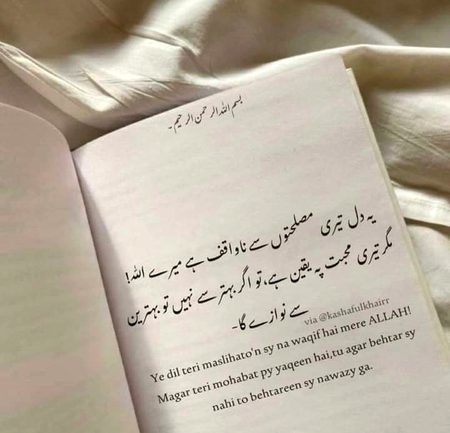 بسم اللہ الرحمن الرحیم -
یہ دل تیری مصلحتوں سے ناواقف ہے میرے اللہ!
مگر تیری محبت پہ یقین ہے، تو اگر بہتر سے نہیں تو بہترین
سے نوازے گا-
via @kashafulkhairr
Ye dil teri maslihato'n sy na waqif hai mere ALLAH!
Magar teri mohabat py yaqeen hai,tu agar behtar sy
nahi to behtareen sy nawazy ga.